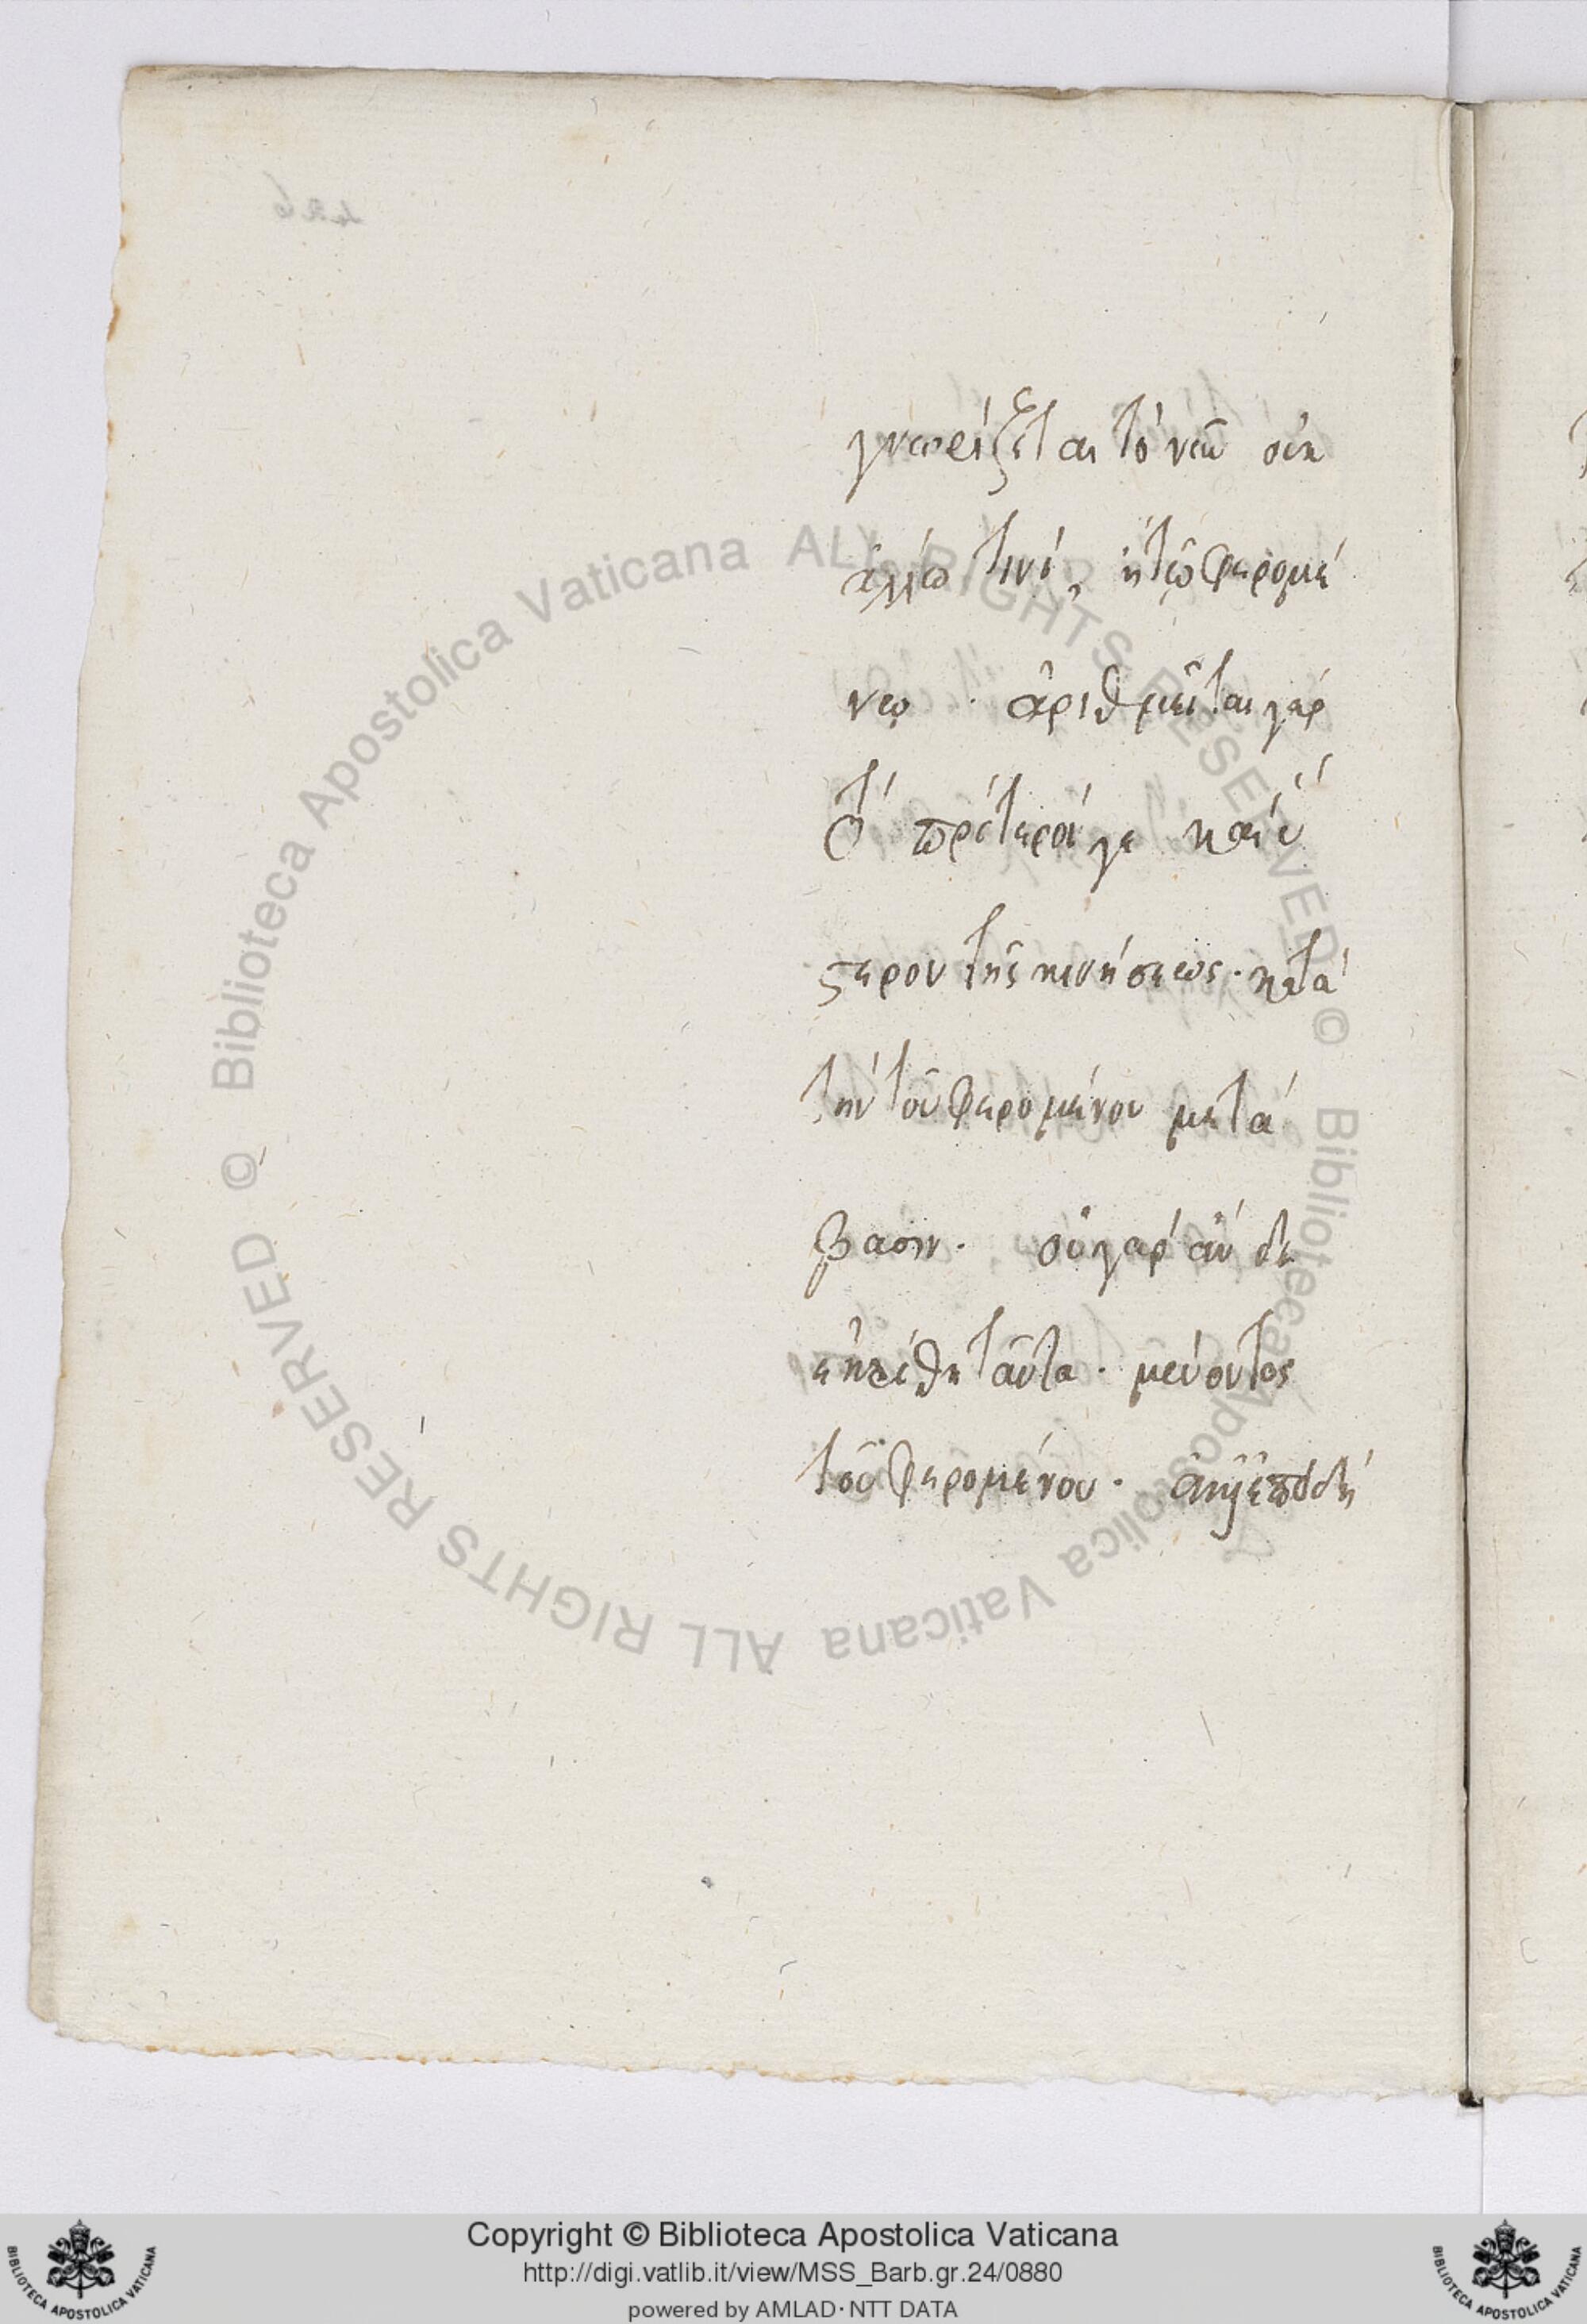 γνωρίζεται τὸ νῦν οὐκ
ἄλλω τινὶ, ἢ τῷ φερομέ
νῳ. ἀριθμεῖται γὰρ
τὸ πρότερόν γε καὶ ὕ
στερον τῆς κινήσεως. κατὰ
τὴν τοῦ φερομένου μετά
βασιν. οὐ γὰρ ἂν δι
εκρίθη ταῦτα. μένοντος
τοῦ φερομένου.
Biblioteca Apostolica Vaticana ALL RIGHTS RESERVED ©
Biblioteca Apostolica Vaticana ALL RIGHTS RESERVED ©
Copyright © Biblioteca Apostolica Vaticana
http://digi.vatlib.it/view/MSS_Barb.gr.24/0880
powered by AMLAD·NTT DATA
BIBLIOTECA APOSTOLICA VATICANA
BIBLIOTECA APOSTOLICA VATICANA